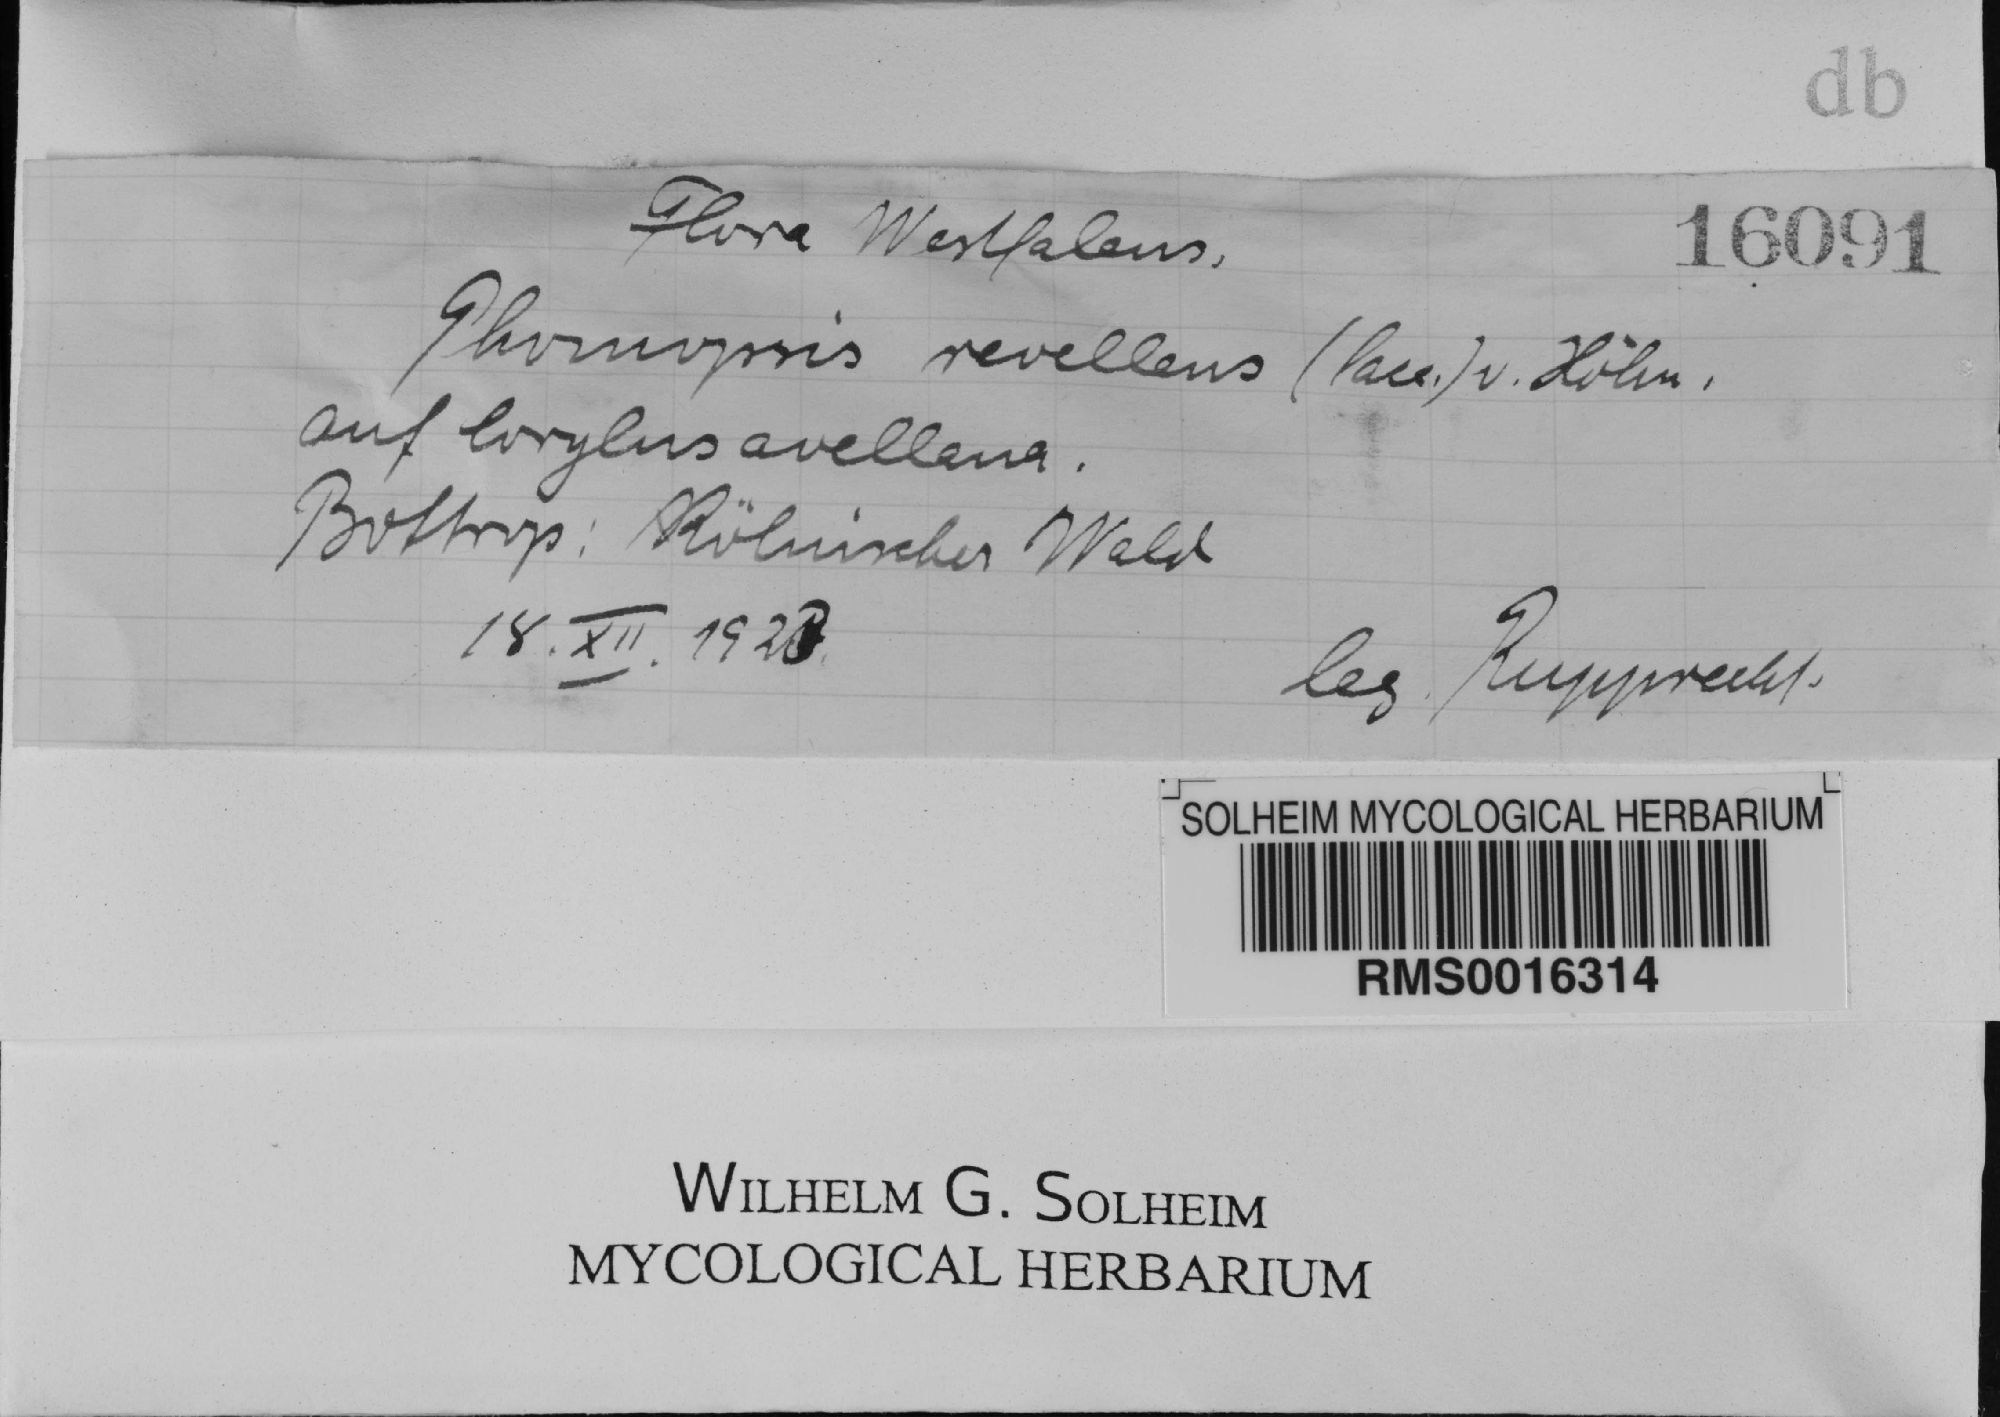 db
Flora Westfalens.
16091
Phomopsis revellens (Sacc.) v. Höhn.
auf Corylus avellana.
Bottrop: Kölnischer Wald
18. XII.
leg. Rupprecht.
SOLHEIM MYCOLOGICAL HERBARIUM
RMS0016314
WILHELM G. SOLHEIM
MYCOLOGICAL HERBARIUM